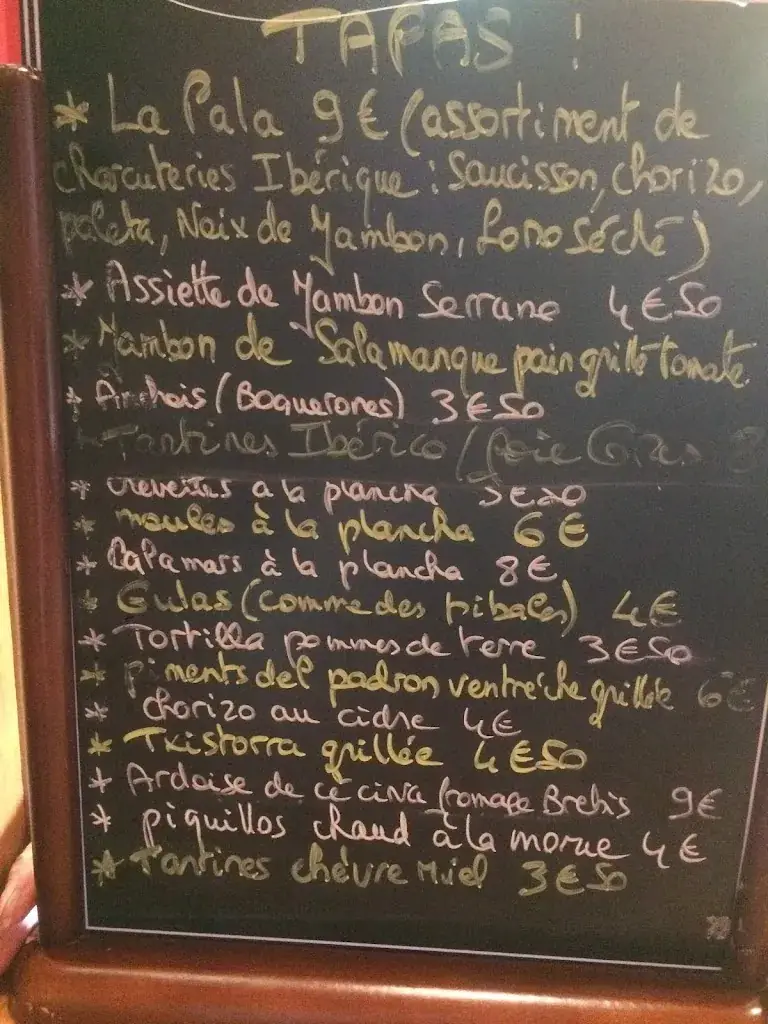 TAPAS !
* La Pala 9€ (assortiment de
charcuteries Ibérique : Saucisson, chorizo,
paleta, Noix de Jambon, Lomo séché)
* Assiette de Jambon Serrano 4€50
* Jambon de Salamanque pain grillé tomate
* Anchois (Boquerones) 3€50
Tartines Ibérico / foie Gras 8
* crevettes a la plancha 5€20
* moules à la plancha 6€
* Calamars à la plancha 8€
* Gulas (comme des pibales) 4€
* Tortilla pommes de terre 3€50
* piments del padron ventrèche grillée 6€
* chorizo au cidre 4€
* Txistorra grillée 4€50
* Ardoise de cecina fromage Brebis 9€
* piquillos chaud à la morue 4€
* Tartines chévre Miel 3€50